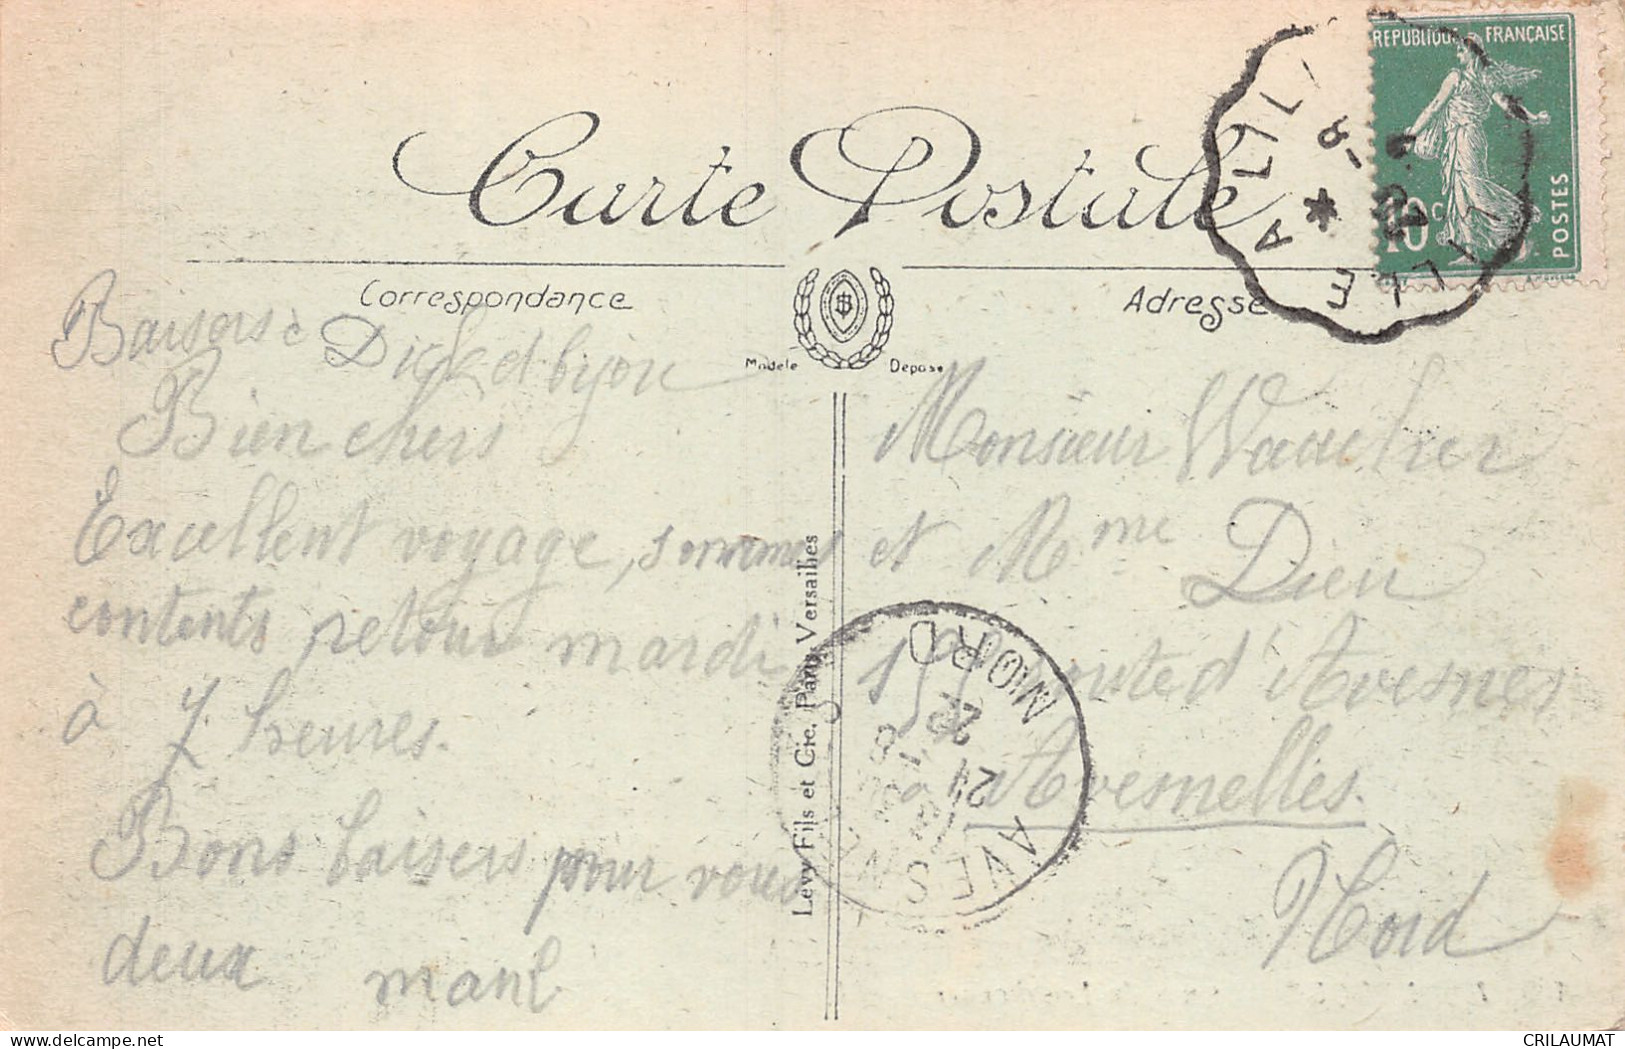 Carte Postale
REPUBLIQUE FRANÇAISE
10 c
POSTES
LILLE A
Correspondance
Adresse
Modèle Déposé
Baisers à Dick et bijou
Bien chers
Excellent voyage, sommes
contents retour mardi
à 7 heures.
Bons baisers pour vous
deux
Monsieur
et Mme Dien
route d'Avesnes
Avesnelles.
Nord
Levy Fils et Cie, Paris, Versailles
AVESNES
NORD
21
CRILAUMAT